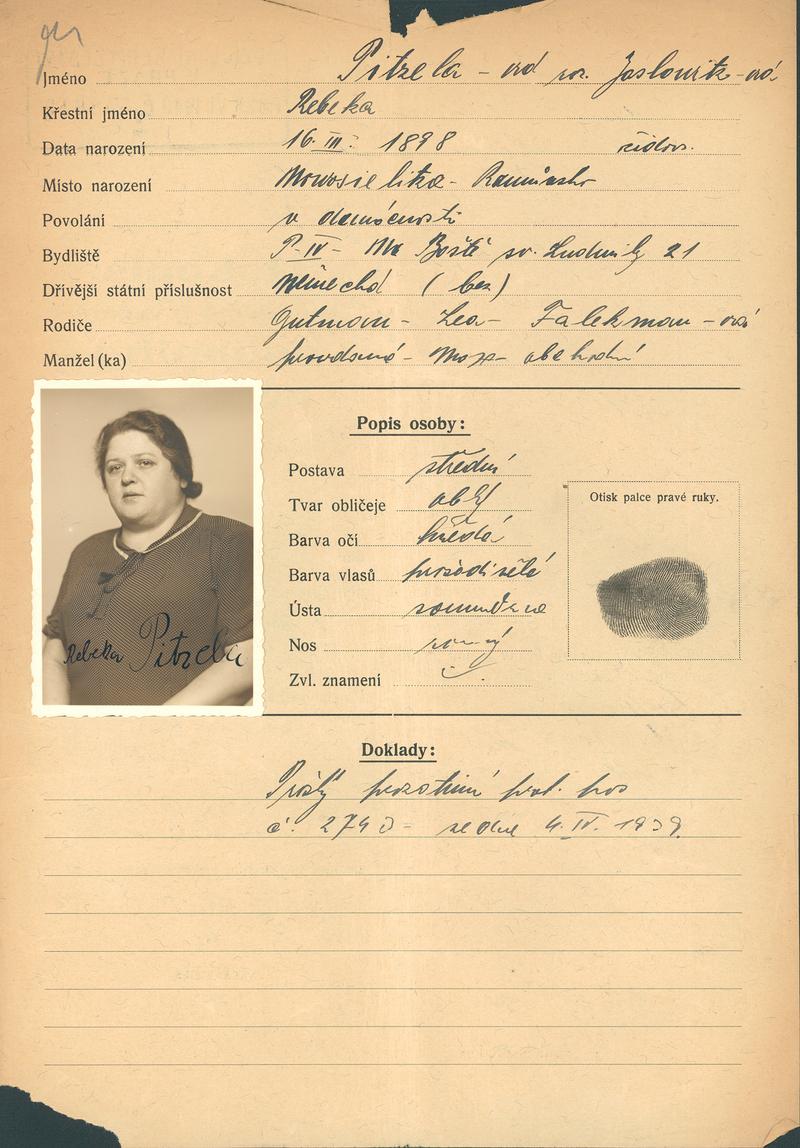 Jméno Pitzela - ová roz. Jaslowitz-ová
Křestní jméno Rebeka
Data narození 16. III. 1898 židovs.
Místo narození Nowosielitza - Rumunsko
Povolání v domácnosti
Bydliště P-IV- Na Baště sv. Ludmily 21
Dřívější státní příslušnost německá (bez)
Rodiče Gutman - Lea - Falekman - ová
Manžel(ka) provdaná - Max - obchodní
Popis osoby:
Postava střední
Tvar obličeje oblý
Barva očí hnědá
Barva vlasů prošedivělé
Ústa souměrná
Nos rovný
Zvl. znamení
Otisk palce pravé ruky.
Rebeka Pitzela
Doklady:
prozatimní
č. 274 ze dne 4. IV. 1939.